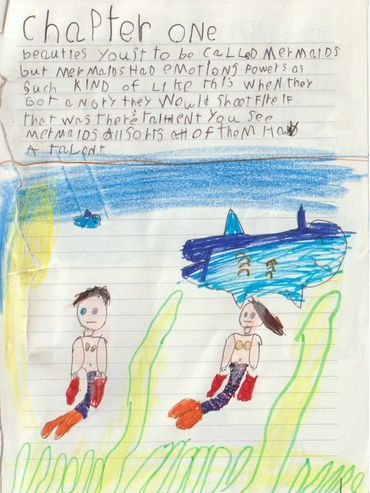 Chapter one
beauties youst to be CALLED Mermaids
but Mermaids HaD emotions Powers as
Such KIND of LIKe this When they
Got angry they Would Shoot Fire IF
that was there talment You See
Mermaids all sorts of them Had
A talent